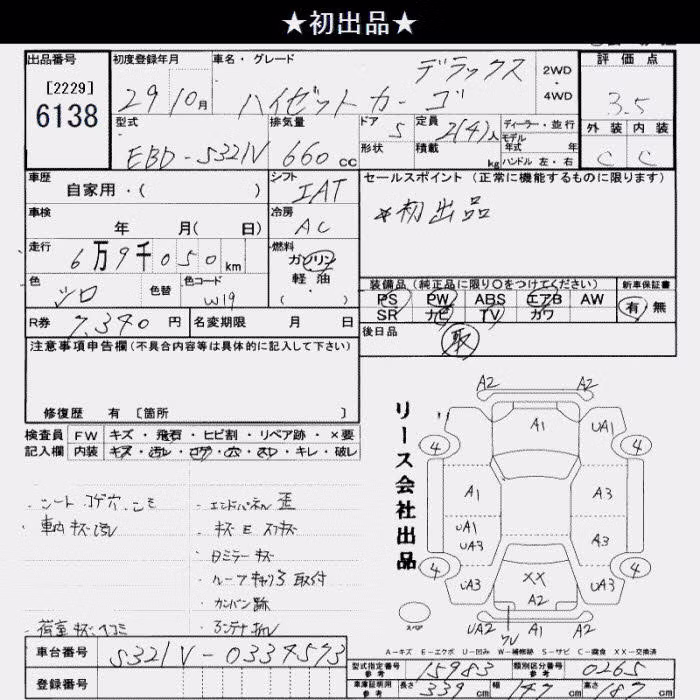 ★初出品★
出品番号
[2229]
6138
初度登録年月
29 10月
車名・グレード
デラックス
ハイゼットカーゴ
2WD
4WD
評価点
3.5
型式
EBD-S321V
排気量
660 cc
ドア 5
形状
定員 2(4)人
積載 kg
ディーラー・並行
モデル年式 年
ハンドル 左・右
外装 内装
C C
車歴
自家用・( )
シフト
IAT
セールスポイント (正常に機能するものに限ります)
*初出品
車検
年 月( 日)
冷房
AC
走行
6万9千050km
燃料
ガソリン
軽油
( ・ )
色
シロ
色替
色コード
W19
装備品(純正品に限り○をつけてください)
PS PW ABS エアB AW
SR ナビ TV カワ
新車保証書
有 無
R券 7,340 円
名変期限 月 日
後日品
取
注意事項申告欄(不具合内容等は具体的に記入して下さい)
修復歴 有 [箇所 ]
検査員 FW キズ・飛石・ヒビ割・リペア跡・×要
記入欄 内装 キズ・汚レ・コゲ・穴・スレ・キレ・破レ
・シート コゲ穴.シミ
・車内 キズ汚レ
・荷室 キズ.ヘコミ
・エンドパネル 歪
・キズ E スリキズ
・Dミラー キズ
・ルーフ キャリア 取付
・カンバン跡
・アンテナ 折レ
リース会社出品
A2 A2
A1
UA1
4 4
A1 A3
UA1
UA3 A3
4 4
UA3 XX UA3
A2
UA2 A2
スペア
A-キズ E-エクボ U-凹み W-補修跡 S-サビ C-腐食 XX-交換済
車台番号
S321V-0334573
登録番号
型式指定番号
参考
15983
類別区分番号
参考
0265
車庫証明用
参考
長さ 339 cm 幅 147 cm 高さ 187 cm